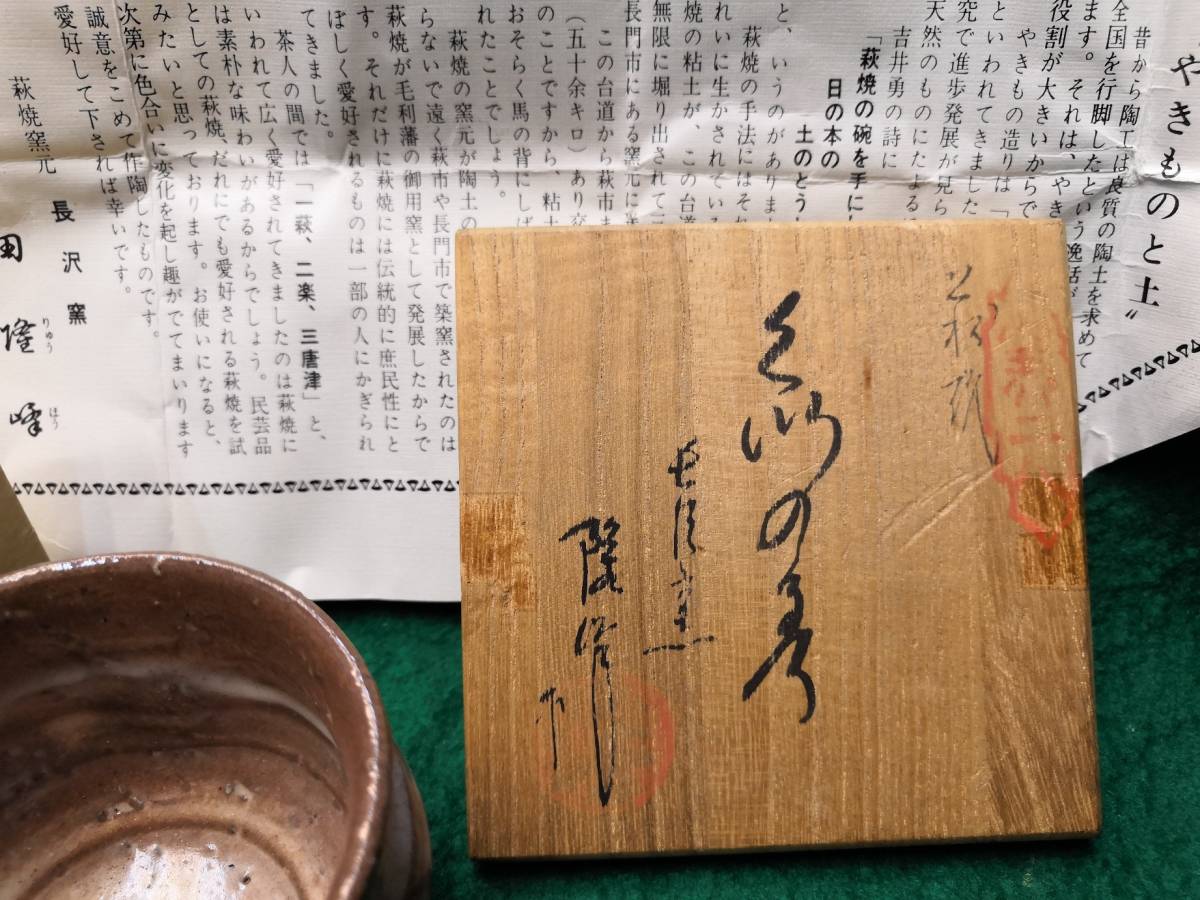 やきものと土〟
昔から陶工は良質の陶土を求めて
全国を行脚したという逸話が
ます。それは、やき
役割が大きいからで
やきもの造りは「
といわれてきました
究で進歩発展が見ら
天然のものによる
吉井勇の詩に
「萩焼の碗を手にし
日の本の
土のとうし
と、いうのがありま
萩焼の手法にはそれ
れいに生かされている
焼の粘土が、この台道
無限に堀り出されて
長門市にある窯元に
この台道から萩市ま
(五十余キロ)あり交
のことですから、粘土
おそらく馬の背にしば
れたことでしょう。
萩焼の窯元が陶土の
らないで遠く萩市や長門市で築窯されたのは
萩焼が毛利藩の御用窯として発展したからで
す。それだけに萩焼には伝統的に庶民性にと
ぼしく愛好されるものは一部の人にかぎられ
てきました。
茶人の間では「一萩、二楽、三唐津」と、
いわれて広く愛好されてきましたのは萩焼に
は素朴な味わいがあるからでしょう。民芸品
としての萩焼、だれにでも愛好される萩焼を試
みたいと思っております。お使いになると、
次第に色合いに変化を起し趣がでてまいります
誠意をこめて作陶したものです。
愛好して下されば幸いです。
萩焼窯元 長沢窯
田隆峰
りゅう ほう
長沢窯
隆峰
作